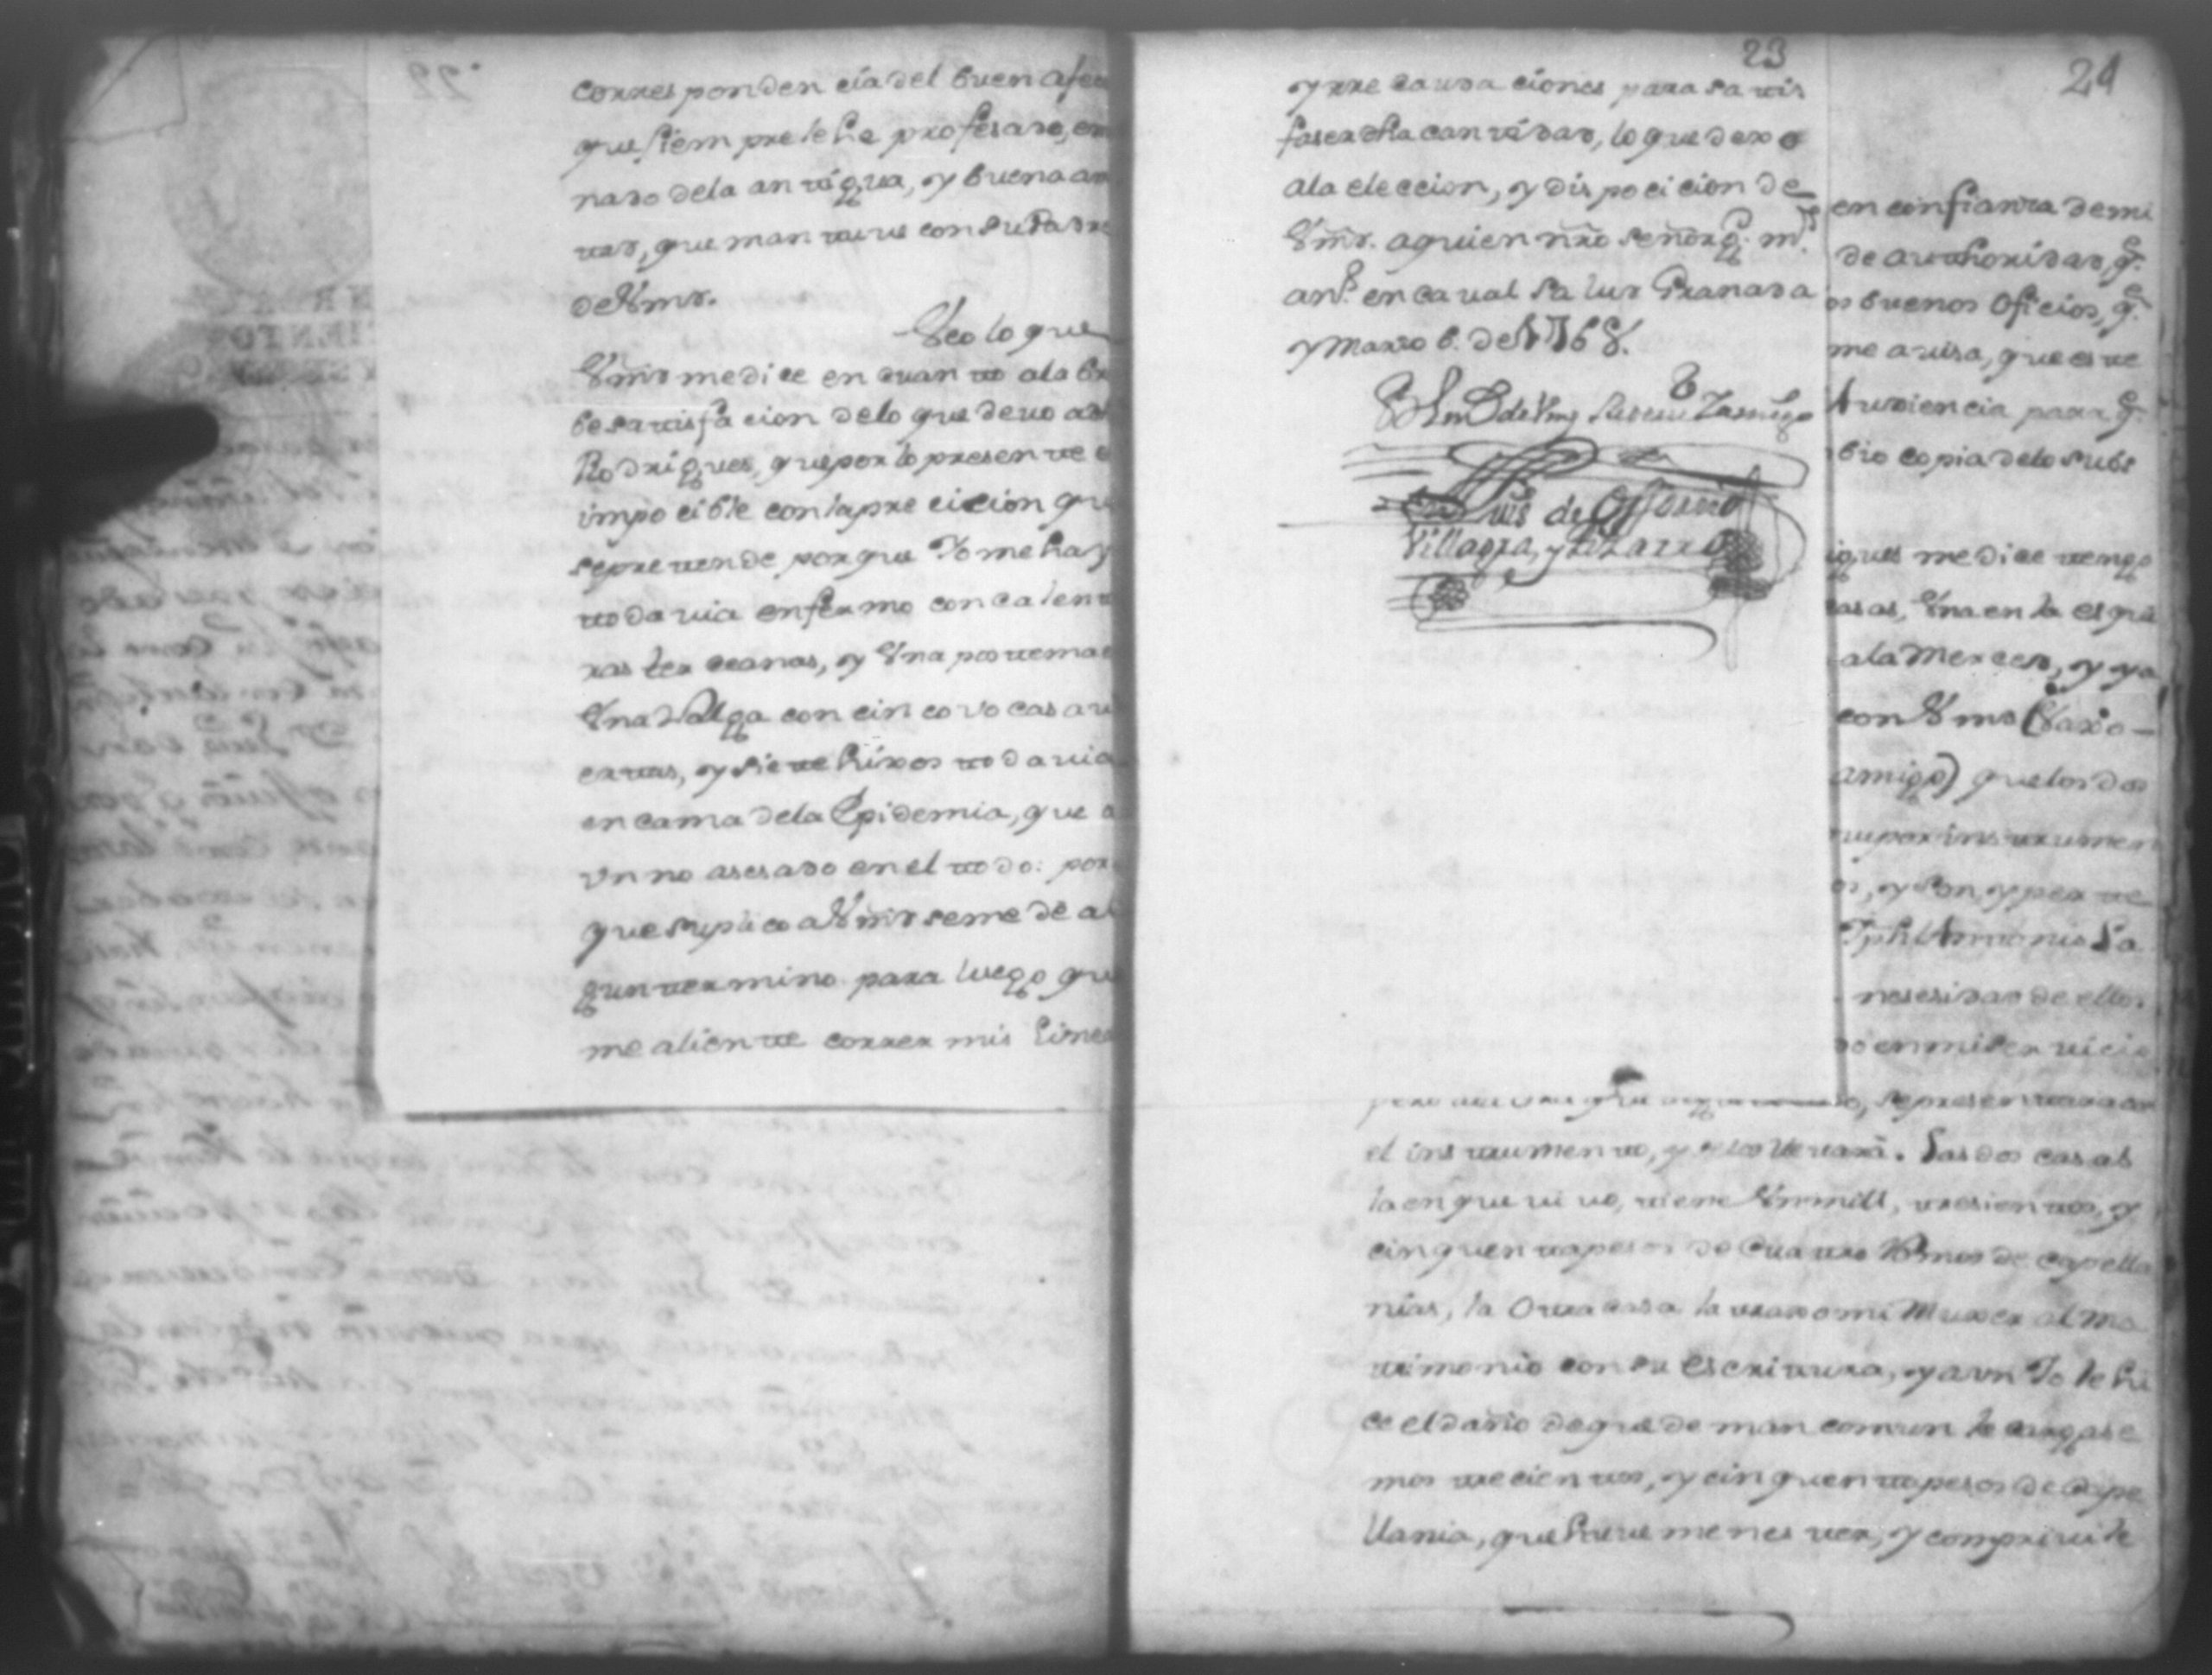 corres ponden cia del buen afec
que siem pre le he profesado, em
nado dela antigua, y buena am
tad, que man tuue con su Padre
de Vmd.
Veo lo que
Vmd me dice en cuan to ala bre
be satisfa cion delo que deuo a
Rodrigues, que por lo presen te e
impo cible con la pre cicion que
se pre ten de porque Yo me hay
to da via enfermo con calentu
ras ter cianas, y Vna
Vna Nalga con cin co vo cas a
y sie te hixos to da via
en cama dela Epidemia, que a
vn no a sesado en el to do: por
que suplico a Vmd se me de al
gun termino para luego que
me alien te correr mis
23
y rre cauda ciones para sa tis
faser dha can tidad, lo que dexo
ala eleccion, y dis po ci cion de
Vmd. a quien nro señor g.e m.s
an.s en caual sa lud Granada
y Marzo 6. de 1768.
BLm de Vmd
Luis de Ossorio
Villagra, y Pizarro
24
en confianza de mi
de authoridad q.e
os buenos Oficios, q.e
me auisa, que es te
Audiencia para q.e
bio copia delo subs
igues me dice tengo
casas, Vna en la esqui
ala Merced, y ya
con Vmd (Caro
amigo) que los dos
por ins trumen
Jph Antonio Sa
nesesidad de ellos
do en mi ser uicio
se presen tara
el ins trumen to, y se lleuara. Las dos casas
la en que ui uo, tiene Vn mill, tresien tos, y
cin quen ta pesos de Cua tro Ramos de Capella
nias, la Otra casa la traxo mi Muxer al Ma
trimonio con su Escri tura, y aun Yo le hi
ce el daño de que de man comun le cargase
mos trecien tos, y cin quen ta pesos de Cape
llania, que huue menes ter, y